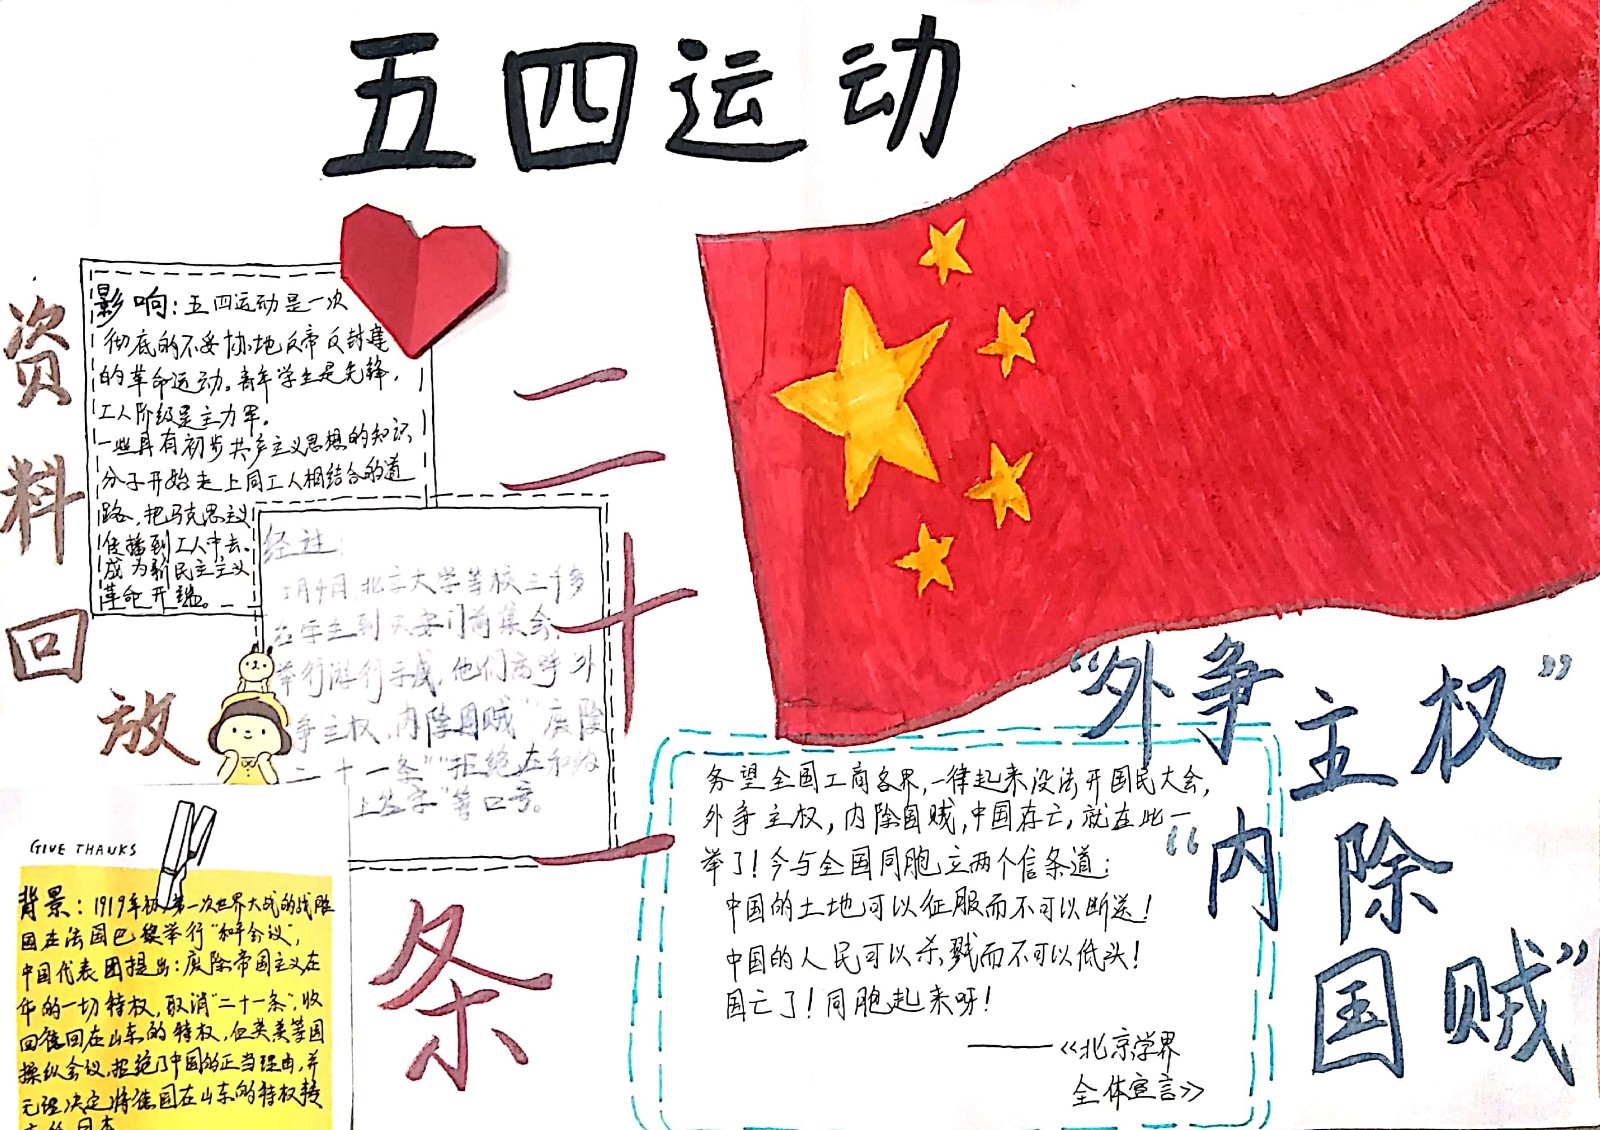 五四运动
资料回放
影响：五四运动是一次
彻底的不妥协地反帝反封建
的革命运动。青年学生是先锋，
工人阶级是主力军。
一些具有初步共产主义思想的知识
分子开始走上同工人相结合的道
路，把马克思主义
传播到工人中去。
成为新民主主义
革命开端。
经过：
月4月，北京大学等校三千多
名学生到天安门前集会，
举行游行示威，他们高呼外
争主权，内除国贼”“废除
二十一条”“拒绝在和约
上签字”等口号。
GIVE THANKS
背景：1919年初，第一次世界大战的战胜
国在法国巴黎举行“和平会议”，
中国代表团提出：废除帝国主义在
华的一切特权，取消“二十一条”，收
回德国在山东的特权，但英美等国
操纵会议，拒绝了中国的正当理由，并
无理决定将德国在山东的特权转
日本
二十一条
“外争主权”
“内除国贼”
务望全国工商各界，一律起来没法开国民大会，
外争主权，内除国贼，中国存亡，就在此一
举了！今与全国同胞立两个信条道：
中国的土地可以征服而不可以断送！
中国的人民可以杀戮而不可以低头！
国亡了！同胞起来呀！
——《北京学界
全体宣言》